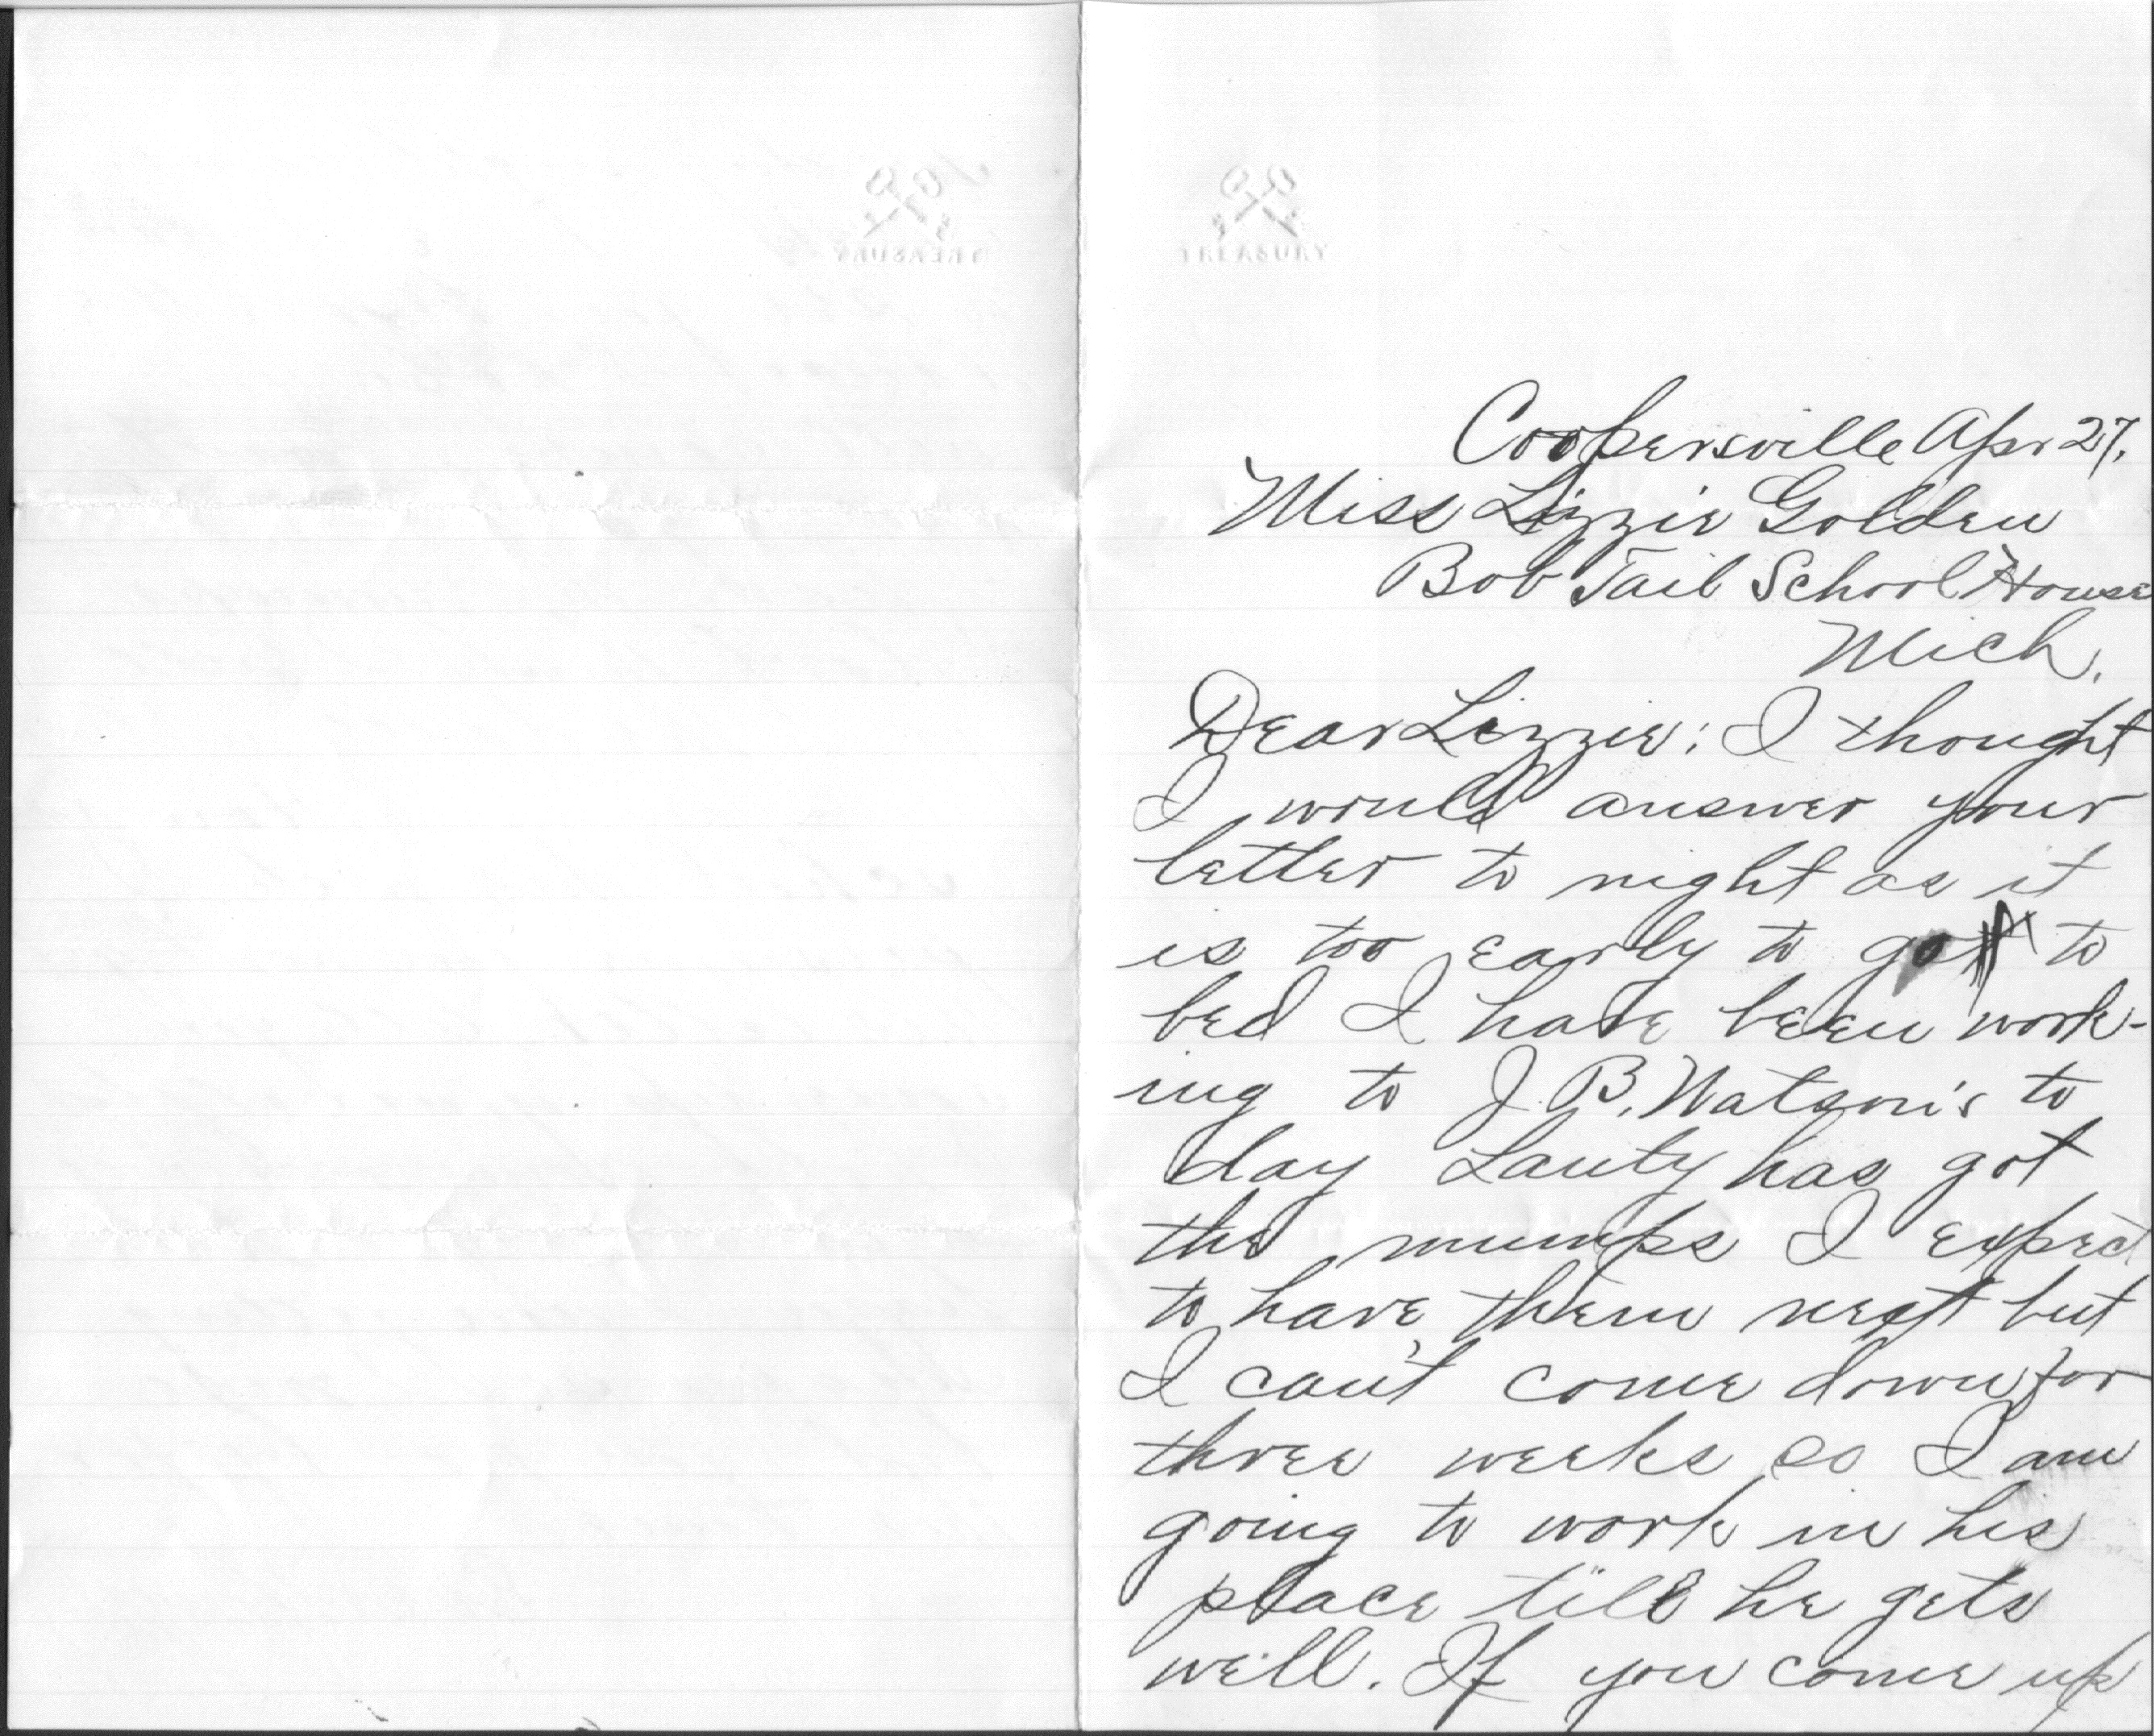 TREASURY
Coopersville Apr 27.
Miss Lizzie Golden
Bob Tail School House
Mich.
Dear Lizzie: I thought
I would answer your
letter to night as it
is too early to go to
bed I have been work-
ing to J. B. Watson's to
day Lanty has got
the mumps I expect
to have them next but
I can't come down for
three weeks so I am
going to work in his
place till he gets
well. If you come up